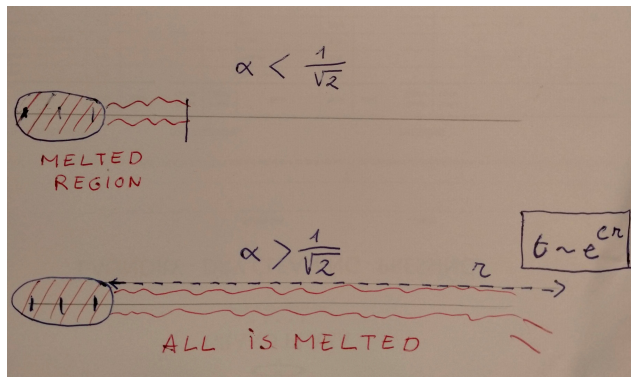 α < 1/√2
MELTED
REGION
t ~ e^{cr}
α > 1/√2
r
ALL is MELTED